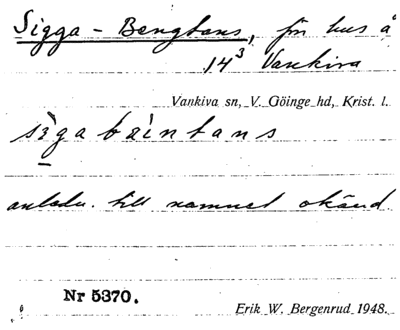 Sigga - Bengtans, fr hus å
14³ Vankiva
Vankiva sn, V. Göinge hd, Krist. l.
sìgabàintans
anledn. till namnet okänd
Nr 5370.
Erik W. Bergenrud 1948.